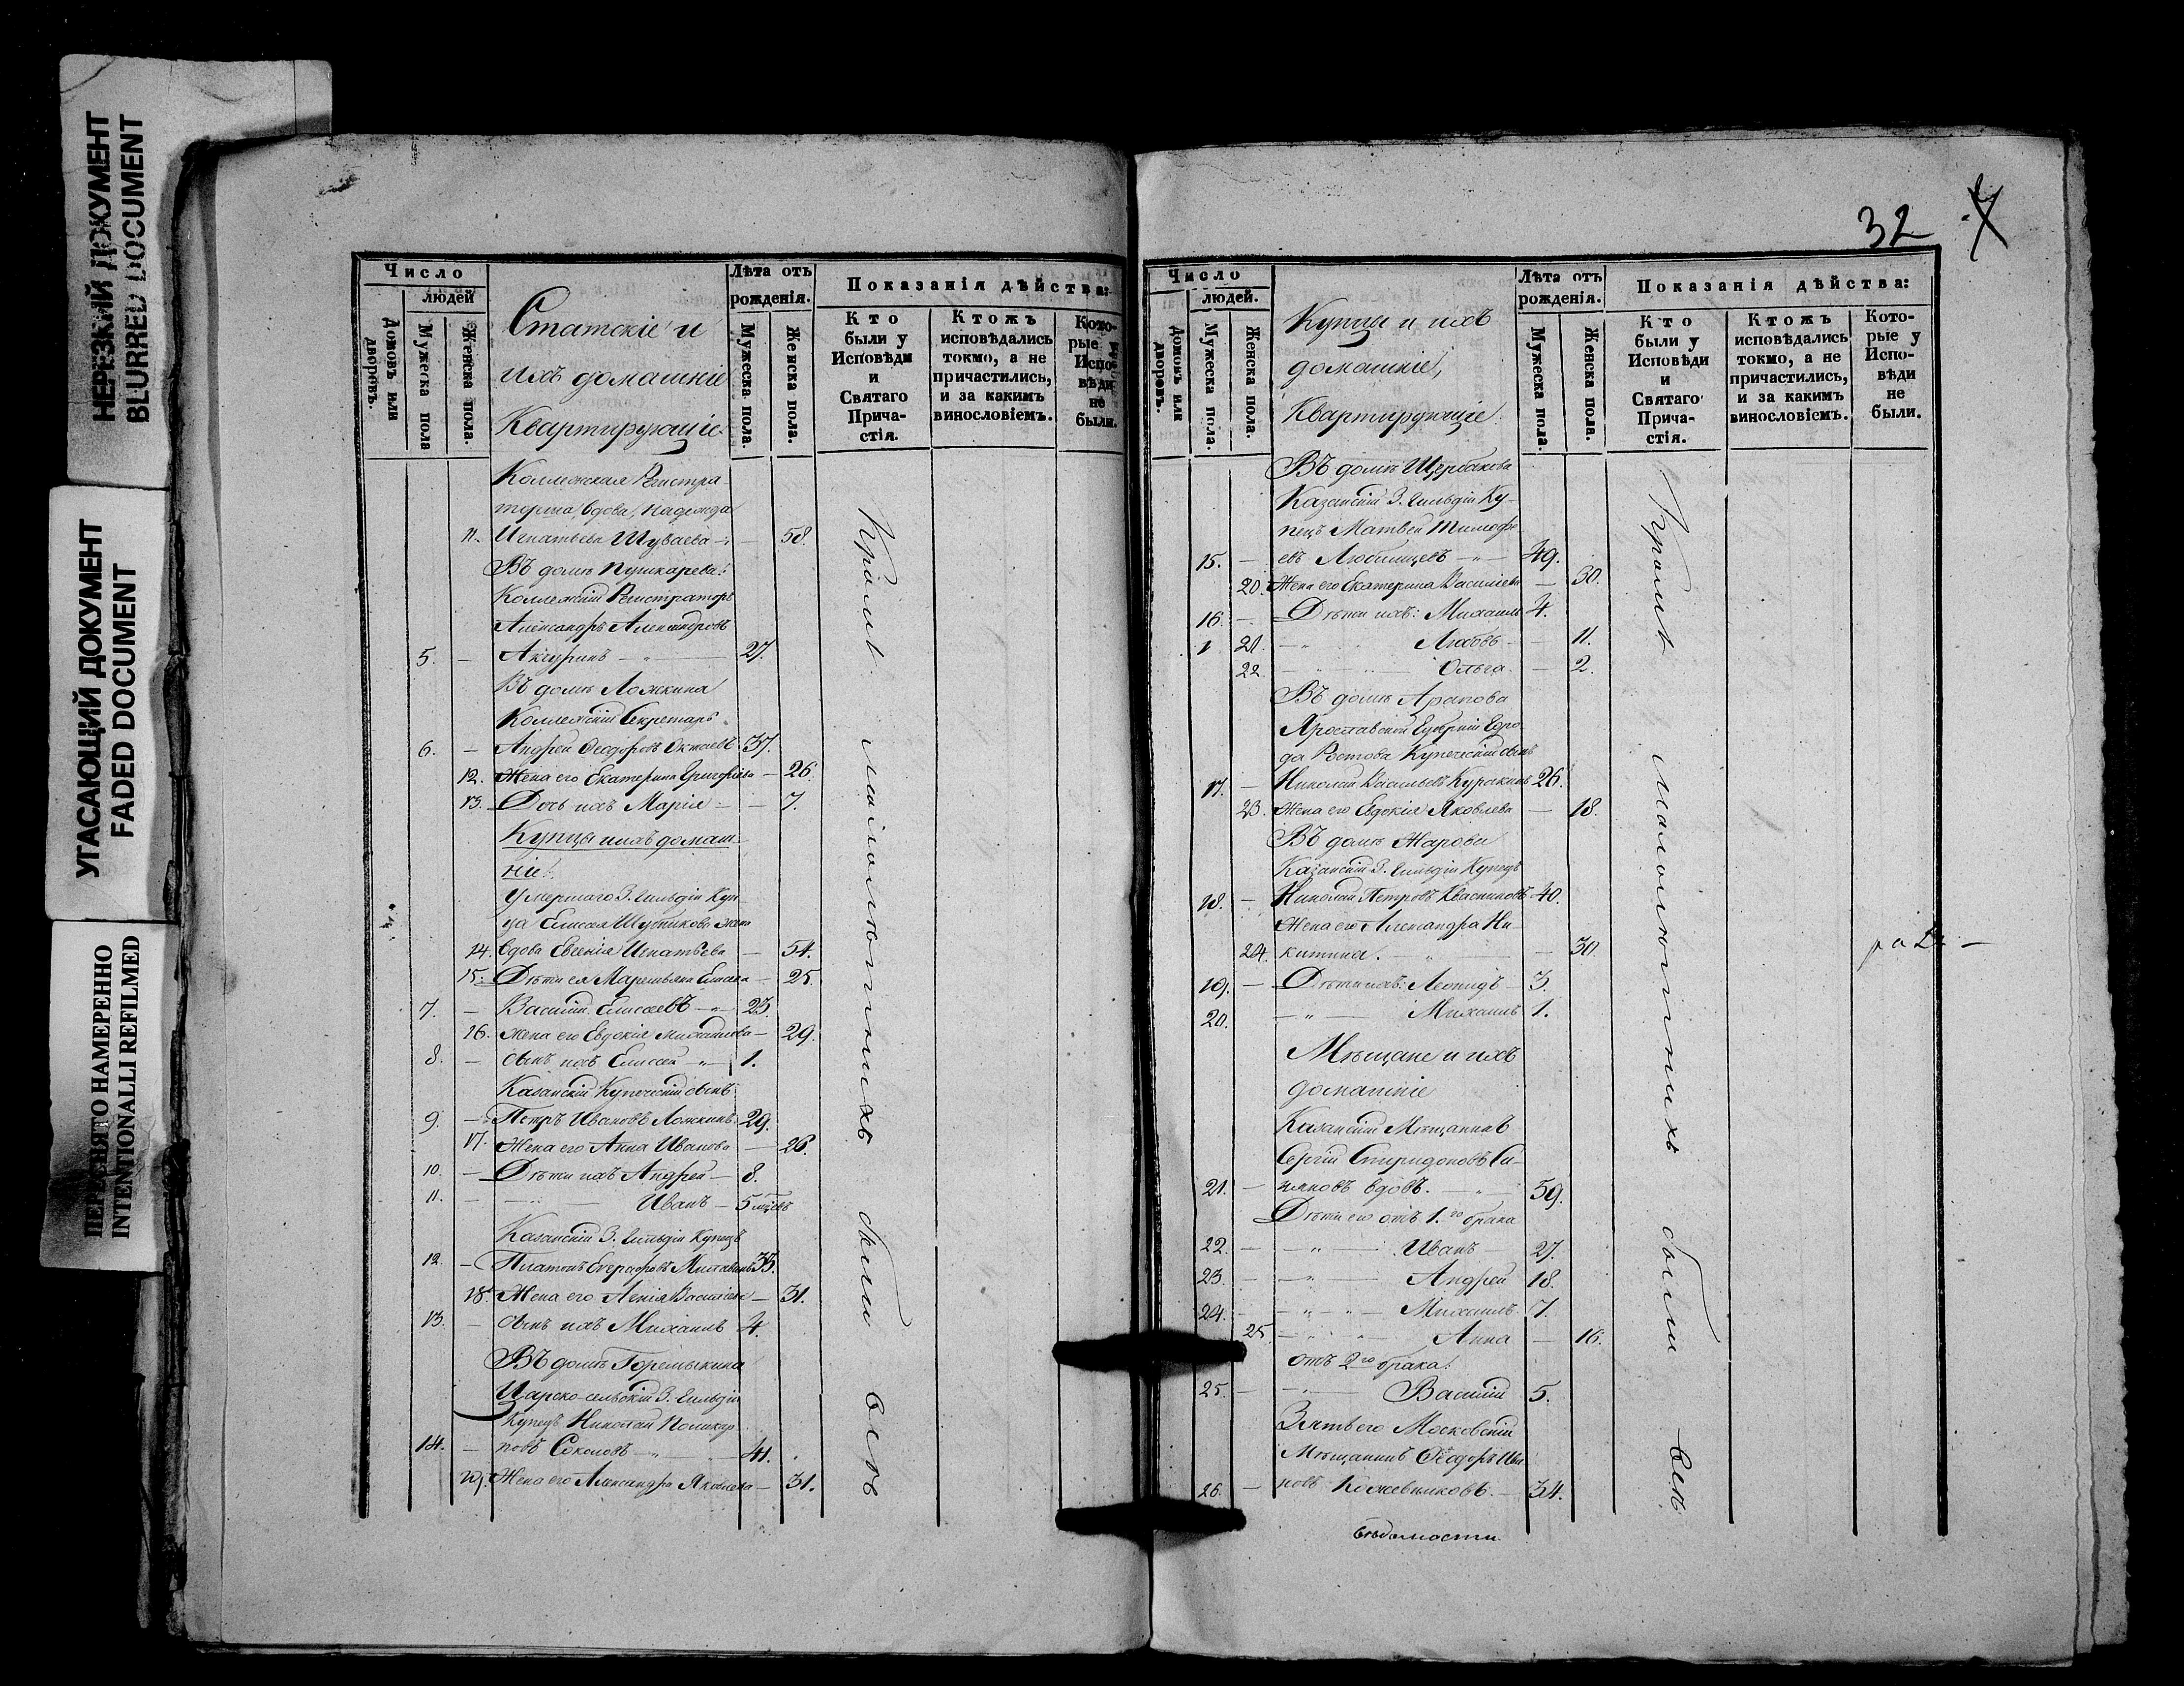 НЕРЕЗКИЙ ДОКУМЕНТ
BLURRED DOCUMENT
УГАСАЮЩИЙ ДОКУМЕНТ
FADED DOCUMENT
ПЕРЕСНЯТО НАМЕРЕННО
INTENTIONALLI REFILMED
Число
людей
Домовъ или дворовъ.
Мужеска пола
Женска пола.
Статскіе и
ихъ домашніе
Квартирующіе
Лѣта отъ
рожденія.
Мужеска пола.
Женска пола.
Показанія дѣйства:
Кто
были у
Исповѣди
и
Святаго
Прича-
стія.
Ктожъ
исповѣдались
токмо, а не
причастились,
и за какимъ
винословіемъ.
Кото-
рые у
Испо-
вѣди
не
были.
Коллежская Регистра-
торша, вдова, Надежда
11. Игнатьева Шуваева — 58.
Въ домѣ Пушкарева:
Коллежскій Регистраторъ
Александръ Александровъ
5. — Акчуринъ — 27.
Въ домѣ Ложкина
Коллежскій Секретарь
6. — Андрей Ѳеодоровъ 37.
12. Жена его Екатерина Григорьева — 26.
13. Дочь ихъ Марія — 7.
Купцы и ихъ домаш-
ніе:
Умершаго 3. гильдіи Куп-
ца Елисея Шубникова жена
14. вдова Евгенія Игнатьева — 54.
15. Дѣти ея — 25.
7. — Василій Елисеевъ — 23.
16. Жена его Евдокія Михайлова — 29.
8. — Сынъ ихъ Елисей — 1.
Казанскій Купеческій сынъ
9. — Петръ Ивановъ Ложкинъ 29.
17. Жена его Анна Иванова — 26.
10. — Дѣти ихъ Андрей — 8.
11. — Иванъ — 5 мѣсцъ
Казанскій 3. гильдіи Купецъ
12. — Платонъ 35.
18. Жена его Васильева — 31.
13. — Сынъ ихъ Михаилъ 4.
Въ домѣ Горемыкина
Царско-сельскій 3. гильдіи
Купецъ Николай Поликар-
14. — повъ Соколовъ — 41.
19. Жена его Александра Яковлева — 31.
Кромѣ малолютнихъ были всѣ
32
Число
людей.
Домовъ или дворовъ.
Мужеска пола.
Женска пола.
Купцы и ихъ
домашніе,
Квартирующіе
Лѣта отъ
рожденія.
Мужеска пола.
Женска пола.
Показанія дѣйства:
Кто
были у
Исповѣди
и
Святаго
Прича-
стія.
Ктожъ
исповѣдались
токмо, а не
причастились,
и за какимъ
винословіемъ.
Кото-
рые у
Испо-
вѣди
не
были.
Въ домѣ Щербакова
Казанскій 3. гильдіи Ку-
пецъ Матвей Тимофе-
15. — евъ Любимцевъ — 49.
20. Жена его Екатерина Васильева — 30.
16. — Дѣти ихъ: Михаилъ 4.
1 21. — Любовь — 11.
22 — Ольга — 2.
Въ домѣ Арапова
Ярославской Губерніи Горо-
да Ростова Купеческій сынъ
17. — Николай Васильевъ Куракинъ 26.
23. Жена его Евдокія Яковлева — 18.
Въ домѣ Жарова
Казанскій 3. гильдіи Купецъ
18. — Николай Петровъ Квасниковъ 40.
Жена его Александра Ни-
24. китина. — 30.
19. — Дѣти ихъ: Леонидъ 3.
20. — Михаилъ 1.
Мѣщане и ихъ
домашніе
Казанскій Мѣщанинъ
Сергій Спиридоновъ Си-
21. — вдовъ. — 59.
Дѣти его отъ 1.го брака
22. — Иванъ — 27.
23. — Андрей 18.
24. — Михаилъ 7.
25. — Анна — 16.
отъ 2го брака:
25. — Василій 5.
Зять его Московскій
Мѣщанинъ Ѳеодоръ Ива-
26. — новъ Кожевниковъ — 34.
Кромѣ малолютнихъ были всѣ
вѣдомости